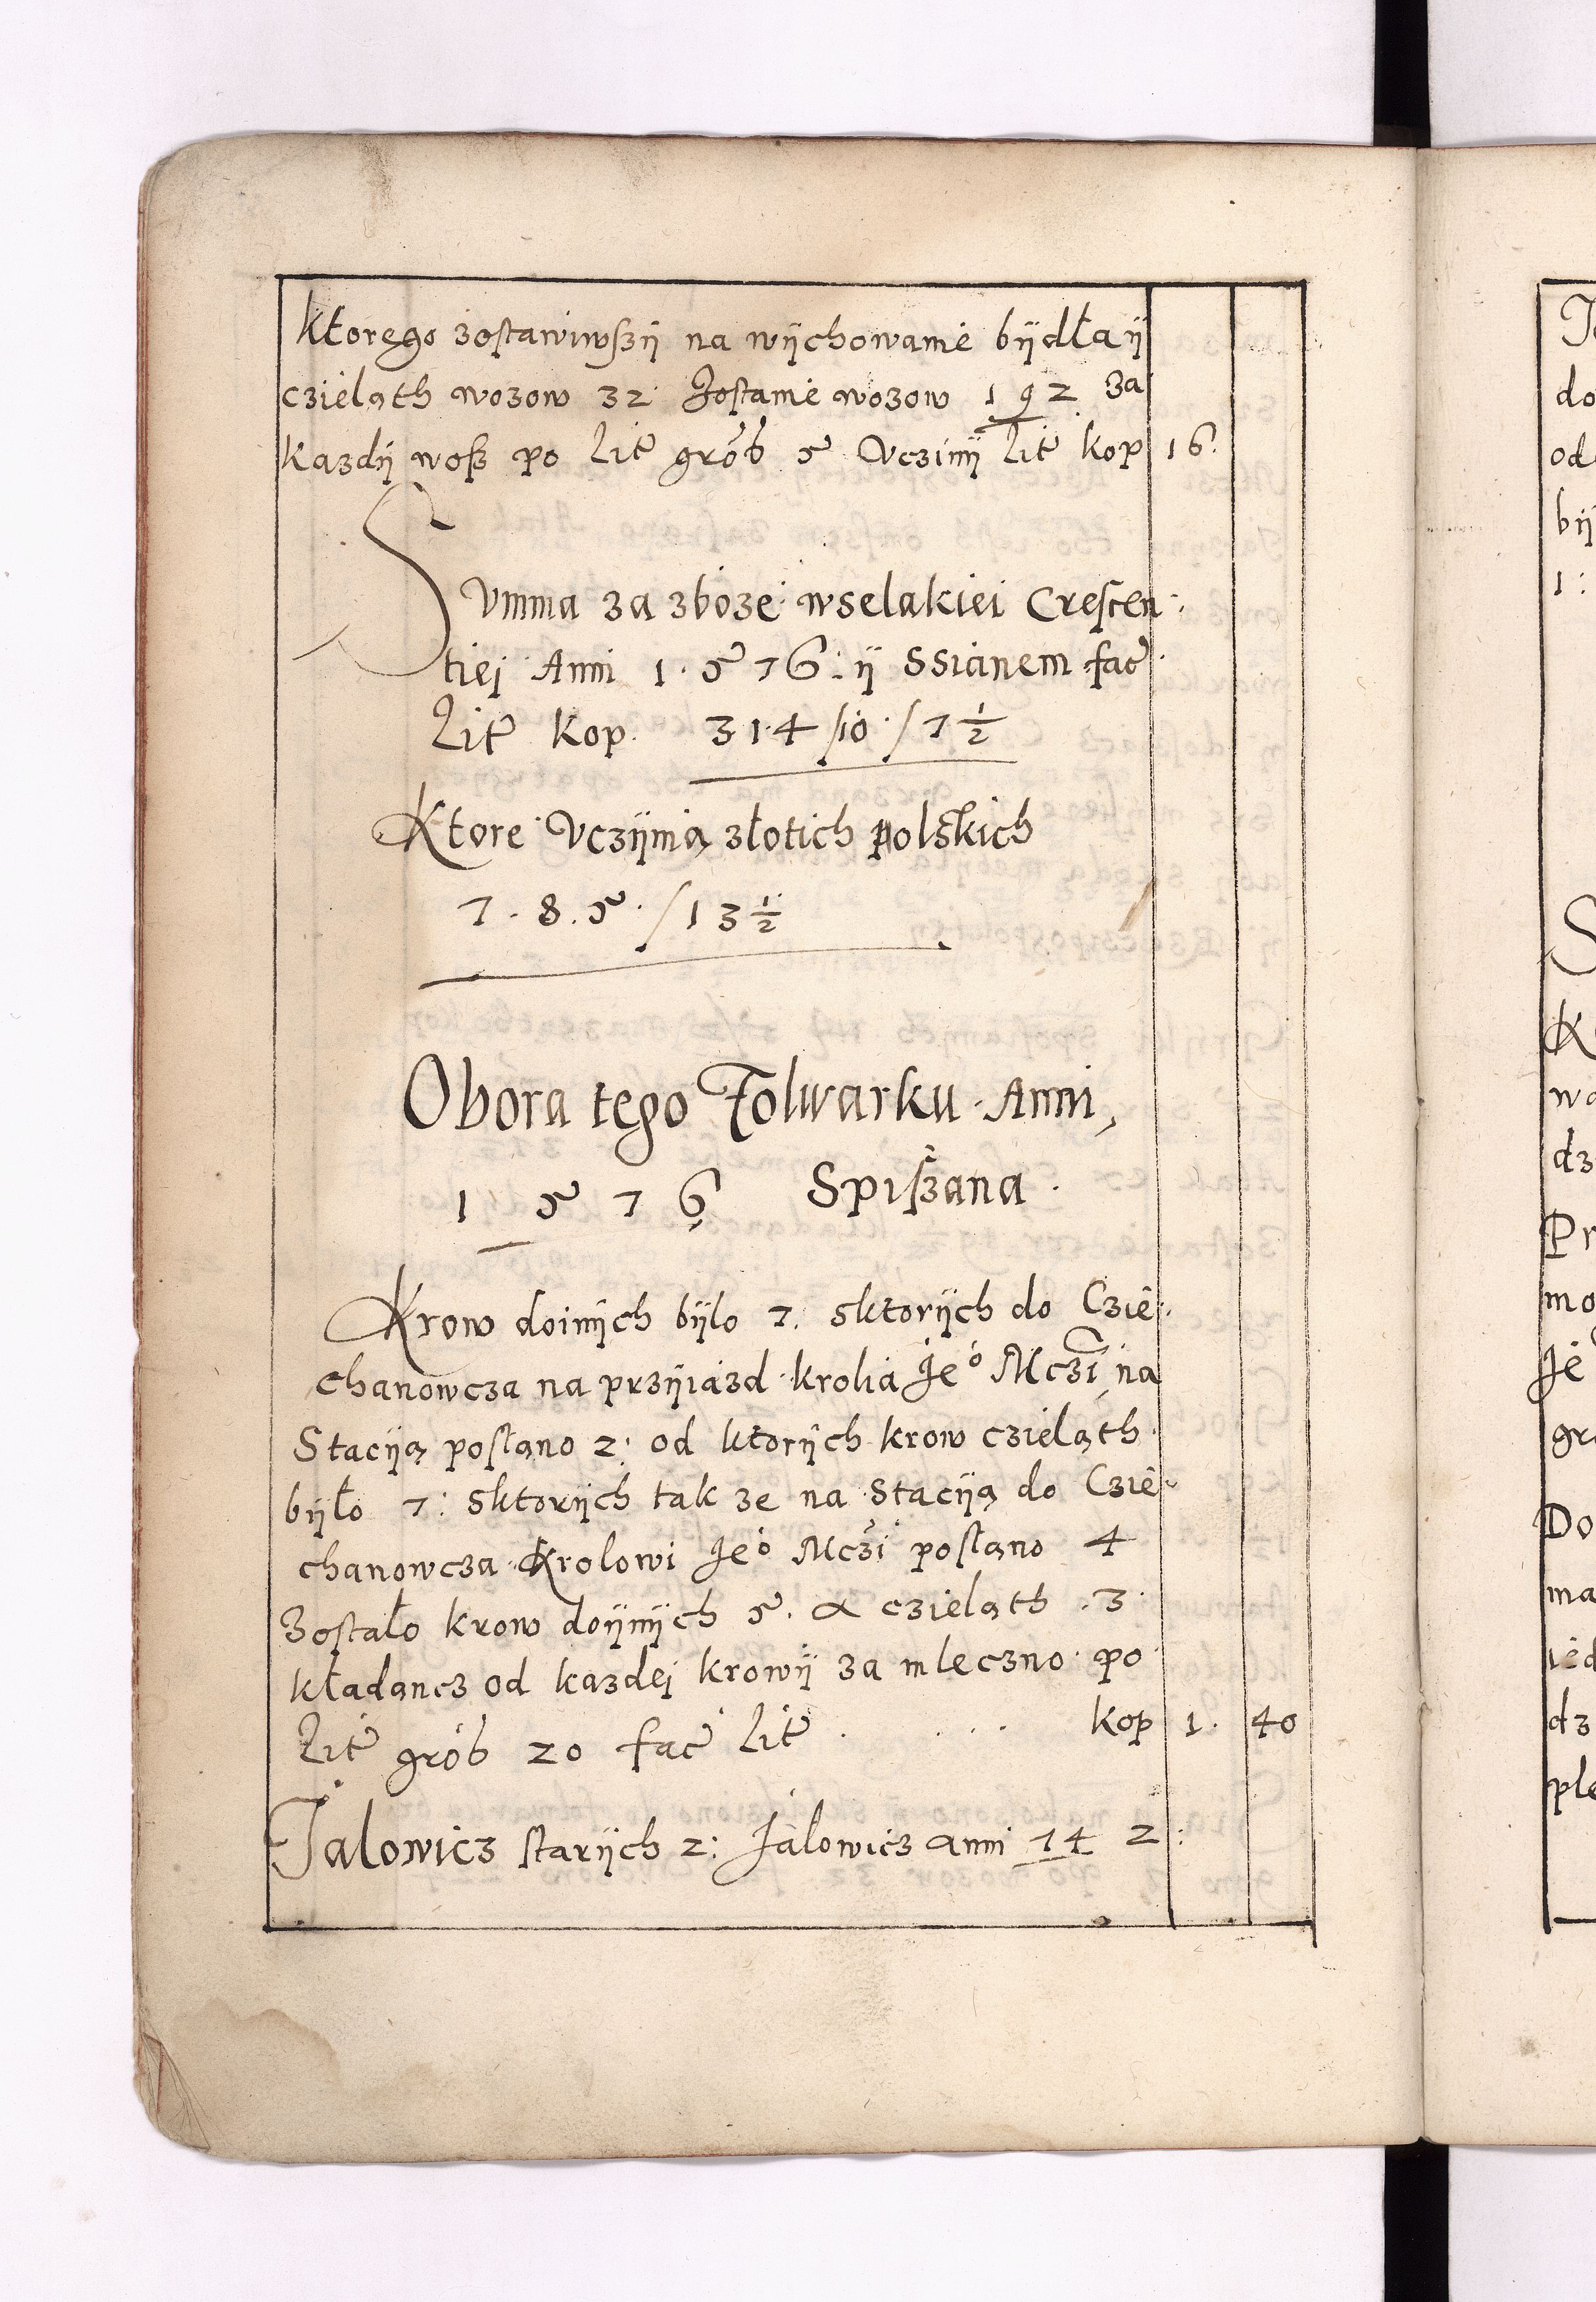 ktorego zostawiwszÿ na wÿchowanie bÿdła ÿ
czieląth wozow 32 Zostanie wozow 192 za
kazdÿ wosz po Lit grosz 5 Uczinÿ Lit kop 16.
Summa za zboze wselakiei Crescen:
tiej Anni 1.576: ÿ Ssianem fac
Lit kop. 314/10/7 1/2
Ktore Uczÿnią złotich polskich
7.8.5./13 1/2
Obora tego Folwarku Anni,
1576 Spiszana.
Krow doinÿch bÿlo 7. sktorÿch do Czie:
chanowcza na przÿiazd krolia Je° Mczi na
Stacÿą posłano 2: od ktorÿch krow czieląth
bÿło 7: sktorÿch tak ze na Stacÿą do Czie:
chanowcza Krolowi Je° Mczi posłano 4
Zostało krow doÿnÿch 5. a czieląth .3.
kładancz od kazdej krowÿ za mleczno po
Lit grosz 20 fac Lit . . . . kop 1. 40
Jalowicz starÿch 2: Jalowicz anni 74 2:
Je
do
od
bÿ
1:
S
wa
dz
Pr
mo
Je
gr
Do
ma
ied
dz
ple